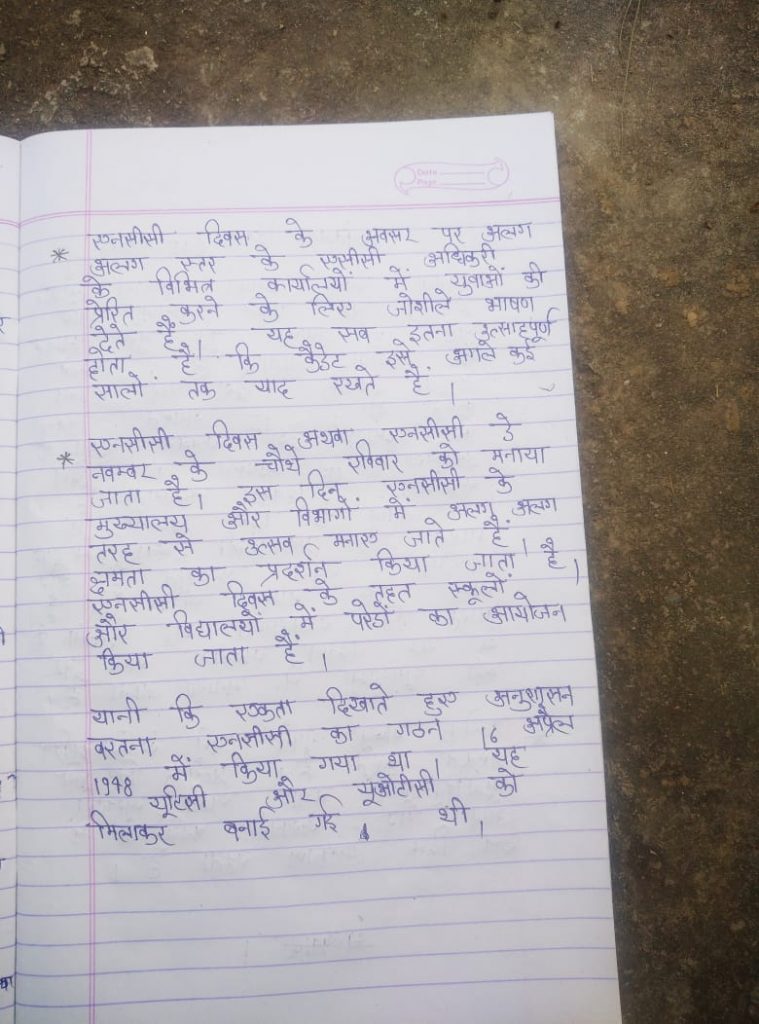 Date
Page
* एनसीसी दिवस के अवसर पर अलग
अलग स्तर के एनसीसी अधिकारी
के विभिन्न कार्यालयों में युवाओं को
प्रेरित करने के लिए जोशीले भाषण
देते हैं। यह सब इतना उत्साहपूर्ण
होता है कि कैडेट इसे अगले कई
सालों तक याद रखते हैं।
* एनसीसी दिवस अथवा एनसीसी डे
नवम्बर के चौथे रविवार को मनाया
जाता है। इस दिन एनसीसी के
मुख्यालय और विभागों में अलग अलग
तरह से उत्सव मनाए जाते हैं।
क्षमता का प्रदर्शन किया जाता है।
एनसीसी दिवस के तहत स्कूलों
और विद्यालयों में परेडों का आयोजन
किया जाता हैं।
यानी कि एकता दिखाते हुए अनुशासन
बरतना एनसीसी का गठन 16 अप्रैल
1948 में किया गया था। यह
यूटिसी और यूओटीसी को
मिलाकर बनाई गई थी।